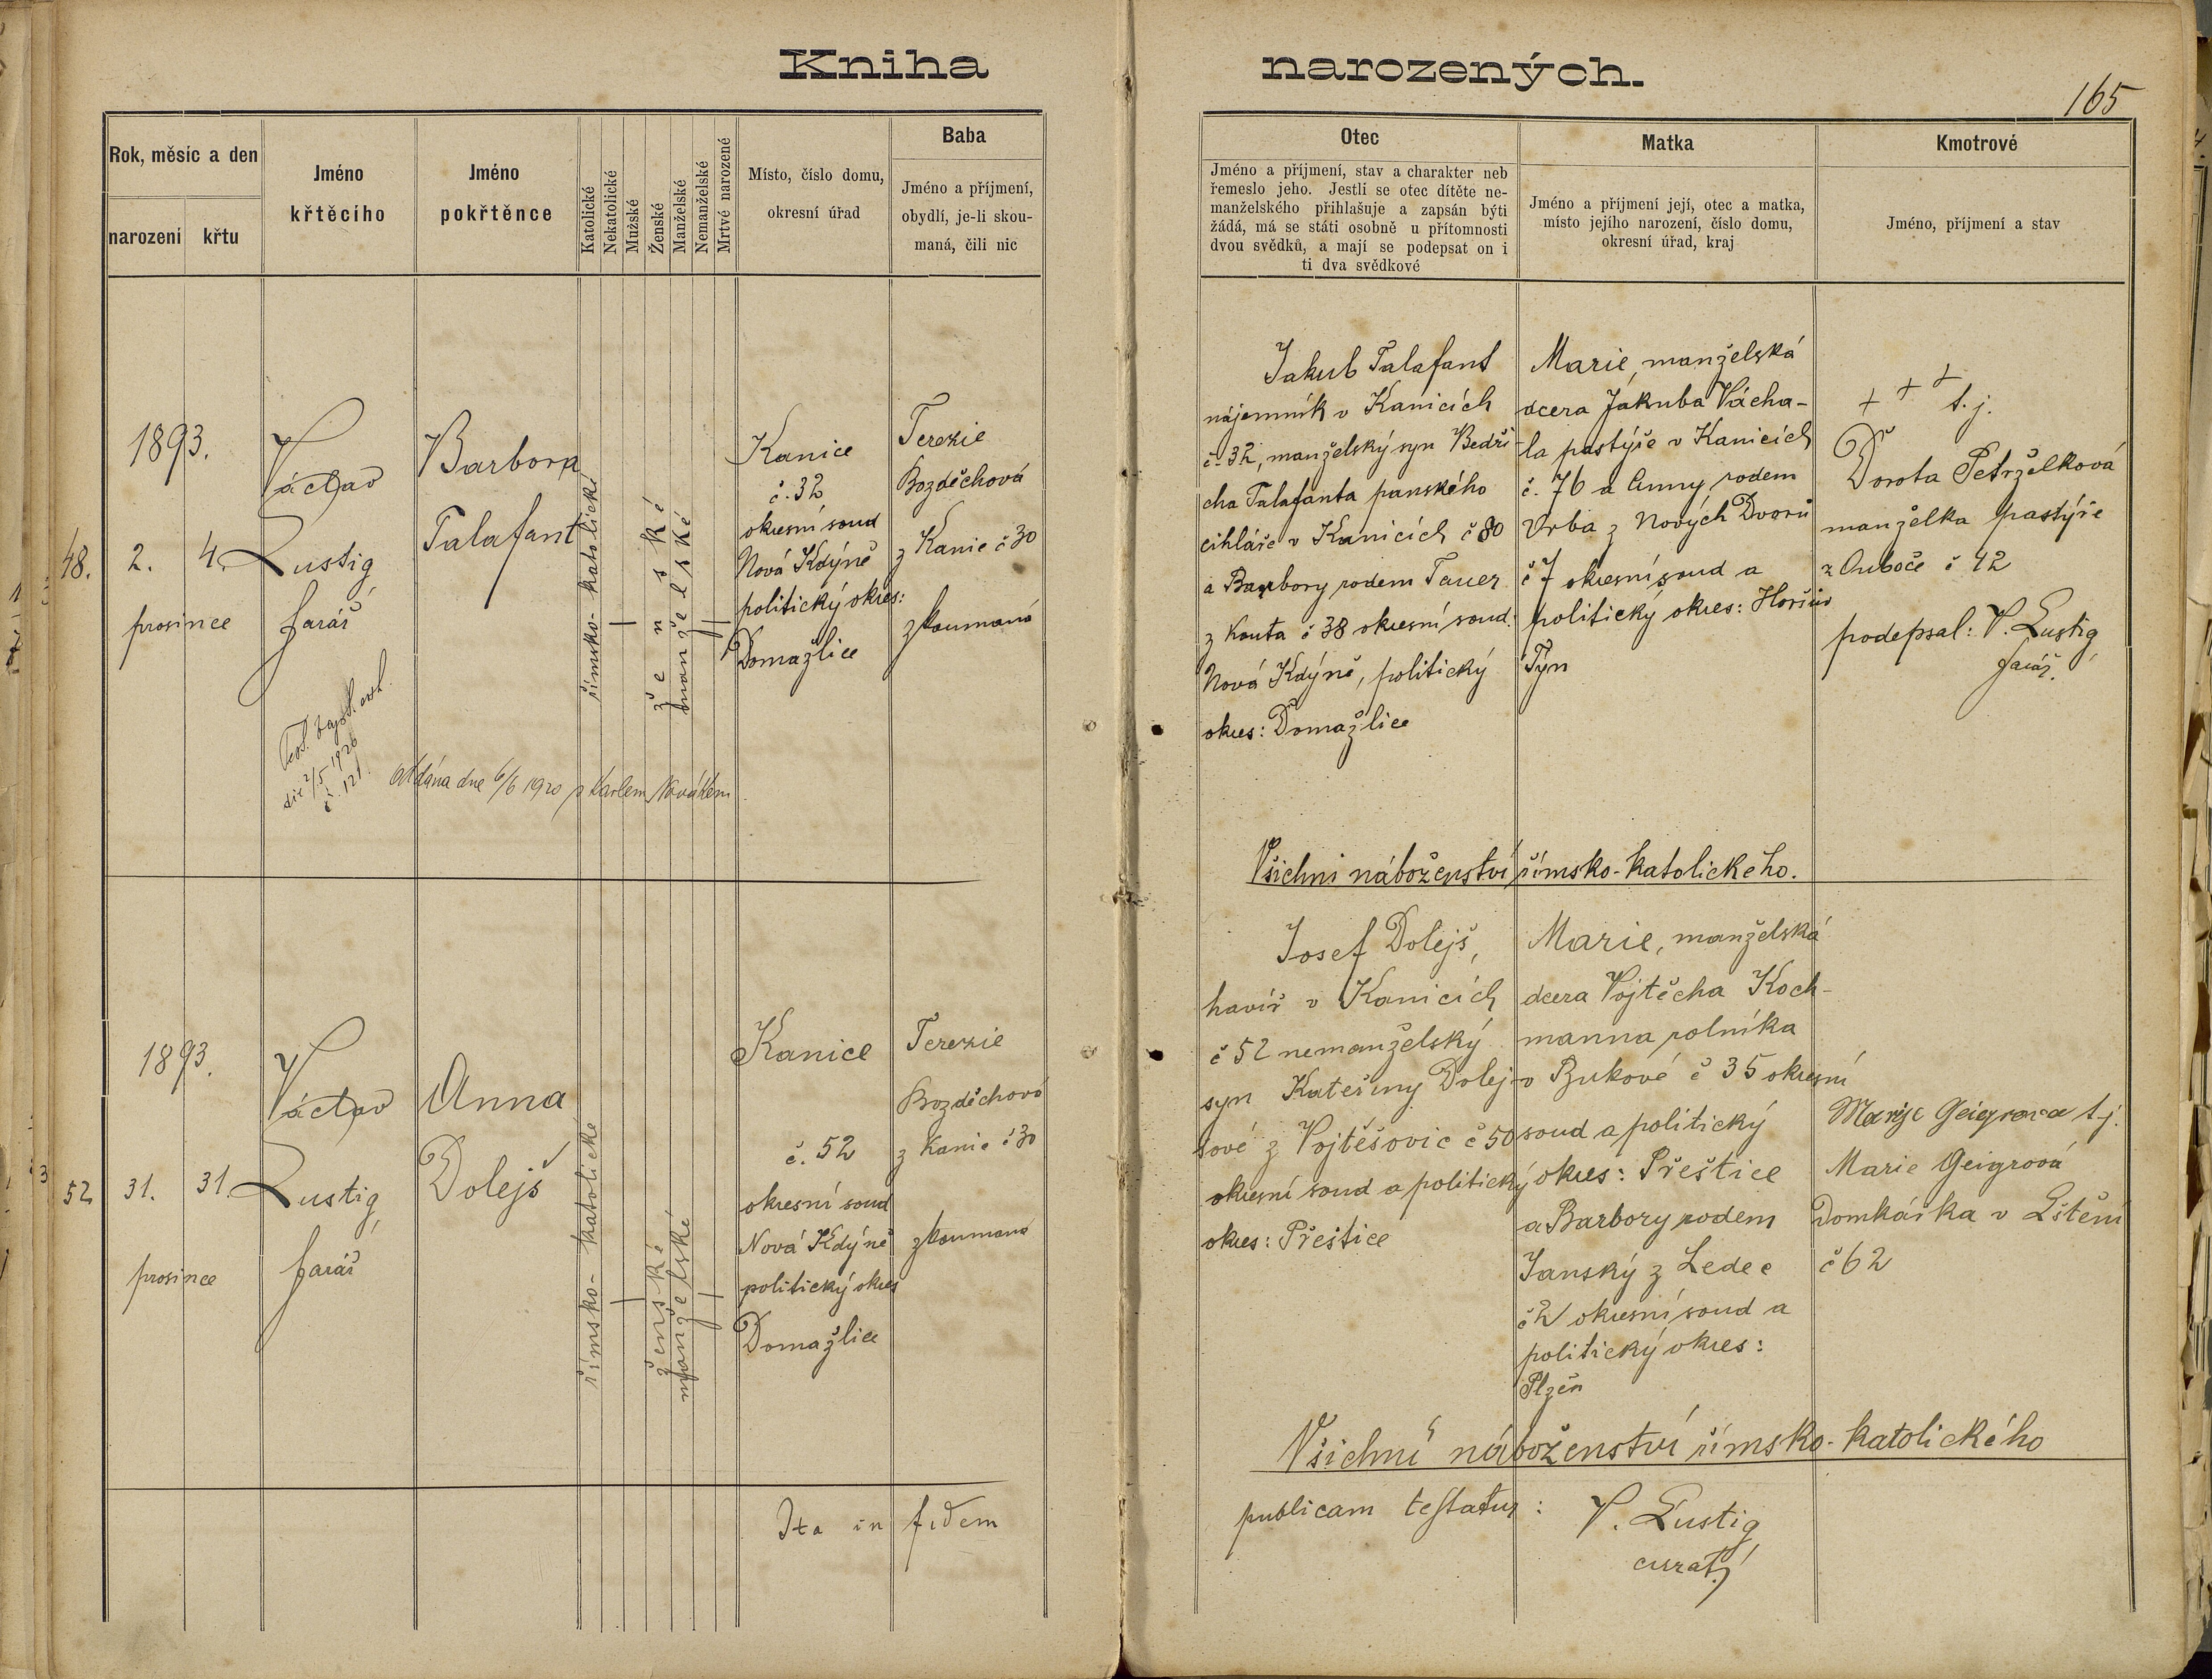 Kniha narozených.
165
Rok, měsíc a den
narození
křtu
Jméno
křtěcího
Jméno
pokřtěnce
Katolické
Nekatolické
Mužské
Ženské
Manželské
Nemanželské
Mrtvé narozené
Místo, číslo domu,
okresní úřad
Baba
Jméno a příjmení,
obydlí, je-li skou-
maná, čili nic
Otec
Jméno a příjmení, stav a charakter neb
řemeslo jeho. Jestli se otec dítěte ne-
manželského přihlašuje a zapsán býti
žádá, má se státi osobně u přítomnosti
dvou svědků, a mají se podepsat on i
ti dva svědkové
Matka
Jméno a příjmení její, otec a matka,
místo jejího narození, číslo domu,
okresní úřad, kraj
Kmotrové
Jméno, příjmení a stav
48.
1893.
2. 4.
prosince
Václav
Lustig
farář
Barbora
Talafant
římsko-katolické
ženské
manželské
Kanice
č. 32
okresní soud
Nová Kdýně
politický okres:
Domažlice
Terezie
Bozděchová
z Kanic č 30
zkoumaná
Jakub Talafant
nájemník v Kanicích
č. 32, manželský syn Bedři-
cha Talafanta panského
cihláře v Kanicích č 80
a Barbory rodem Tauer
z Kouta č 38 okresní soud:
Nová Kdýně, politický
okres: Domažlice
Marie, manželská
dcera Jakuba Vácha-
la pastýře v Kanicích
č. 76 a Anny rodem
Vrba z Nových Dvorů
č 7 okresní soud a
politický okres: Horšův
Týn
+ + + t. j.
Dorota Petrželková
manželka pastýře
z Ouboče č 42
podepsal: V. Lustig
farář.
dne 2/5 1926
č. 121.
oddána dne 6/6 1920 s Karlem Novákem
Všichni náboženství římsko-katolického.
52
1893.
31. 31.
prosince
Václav
Lustig
farář
Anna
Dolejš
římsko-katolické
ženské
manželské
Kanice
č. 52
okresní soud
Nová Kdýně
politický okres
Domažlice
Terezie
Bozděchová
z Kanic č 30
zkoumaná
Josef Dolejš,
havíř v Kanicích
č 52 nemanželský
syn Kateřiny Dolej-
šové z Vojtěšovic č 50
okresní soud a politický
okres: Přeštice
Marie, manželská
dcera Vojtěcha Koch-
manna rolníka
v Bukové č 35 okresní
soud a politický
okres: Přeštice
a Barbory rodem
Janský z Ledec
č 2 okresní soud a
politický okres:
Plzeň
Marije Geigrova t. j.
Marie Geigrová
Domkářka v Lštění
č 62
Všichni náboženství římsko-katolického
Ita in fidem publicam testatur: V. Lustig
curat.